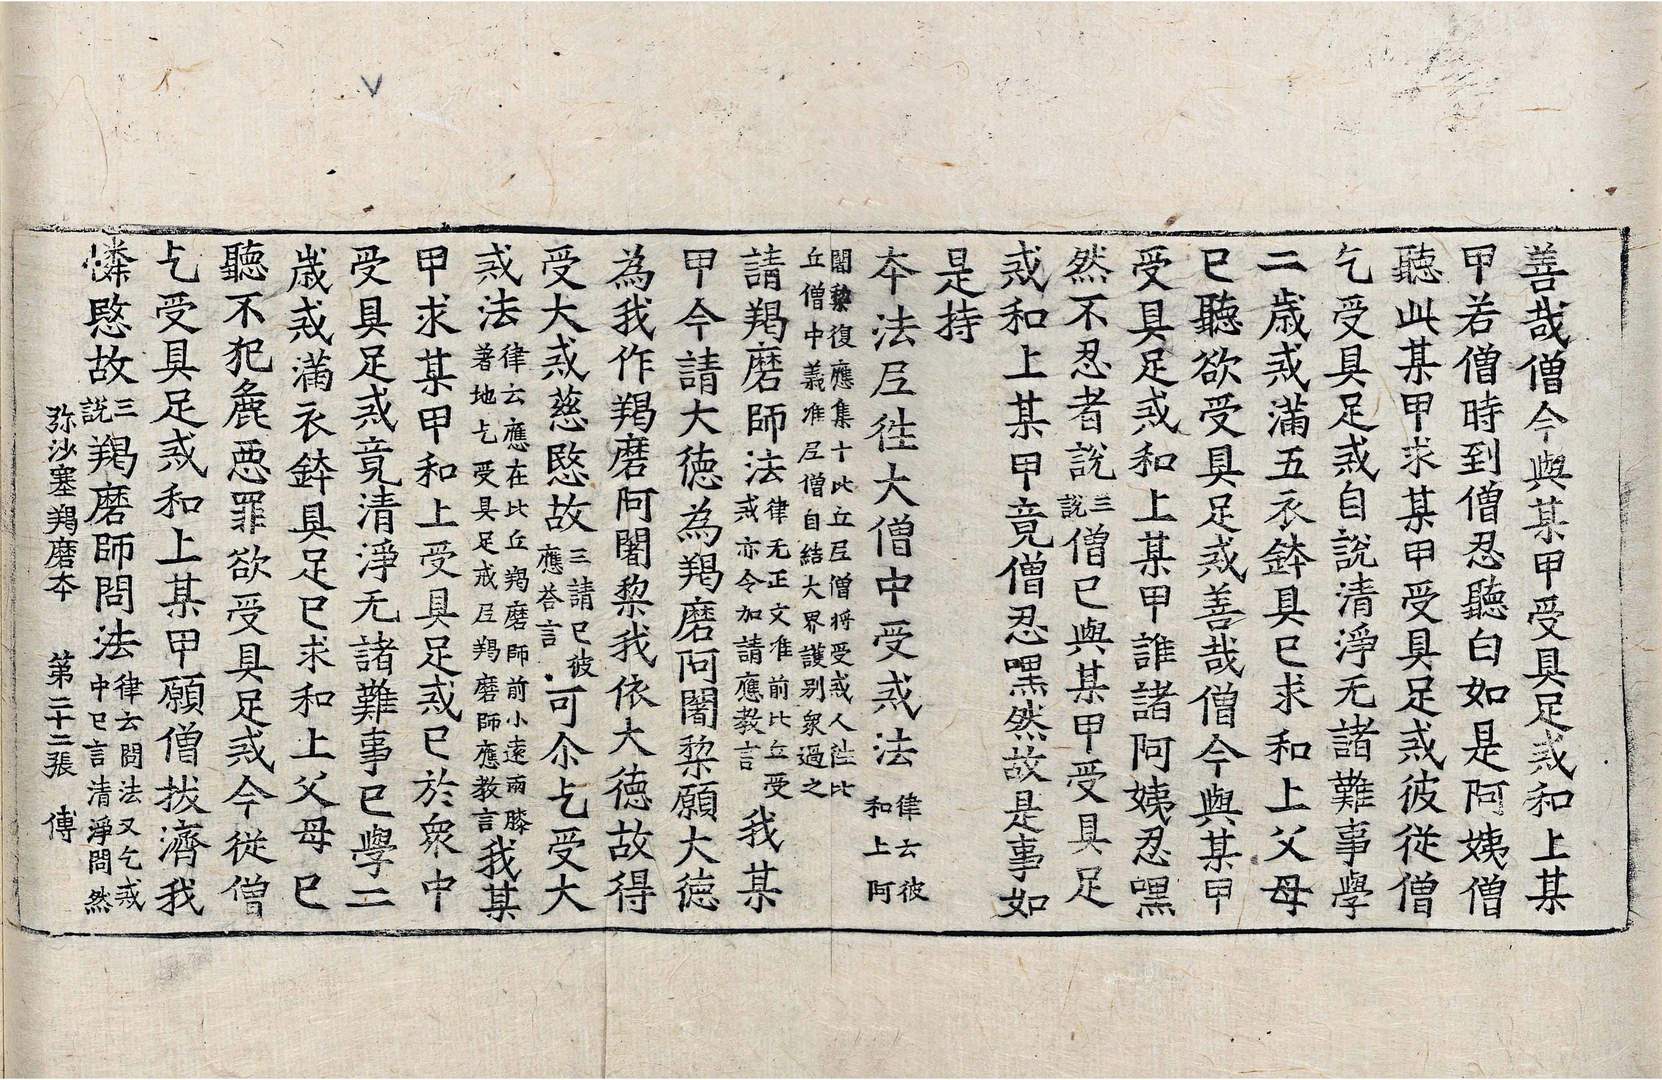 善哉僧今與某甲受具足戒和上某
甲若僧時到僧忍聽白如是阿姨僧
聽此某甲求某甲受具足戒彼從僧
乞受具足戒自說清淨无諸難事學
二歲戒滿五衣鉢具已求和上父母
已聽欲受具足戒善哉僧今與某甲
受具足戒和上某甲誰諸阿姨忍嘿
然不忍者說三說僧已與某甲受具足
戒和上某甲竟僧忍嘿然故是事如
是持
本法尼徃大僧中受戒法律云彼和上阿
闍黎復應集十比丘尼僧將受戒人徃比
丘僧中義准尼僧自結大界護別衆過之
請羯磨師法律无正文准前比丘受戒亦令加請應教言我某
甲今請大德為羯磨阿闍棃願大德
為我作羯磨阿闍棃我依大德故得
受大戒慈愍故三請已彼應荅言可尒乞受大
戒法律云應在比丘羯磨師前小遠兩膝著地乞受具足戒尼羯磨師應教言我某
甲求某甲和上受具足戒已於衆中
受具足戒竟清淨无諸難事已學二
歲戒滿衣鉢具足已求和上父母已
聽不犯麁惡罪欲受具足戒今從僧
乞受具足戒和上某甲願僧拔濟我
憐愍故三說羯磨師問法律云問法又乞戒中已言清淨問然
弥沙塞羯磨本 第二十二張 傅